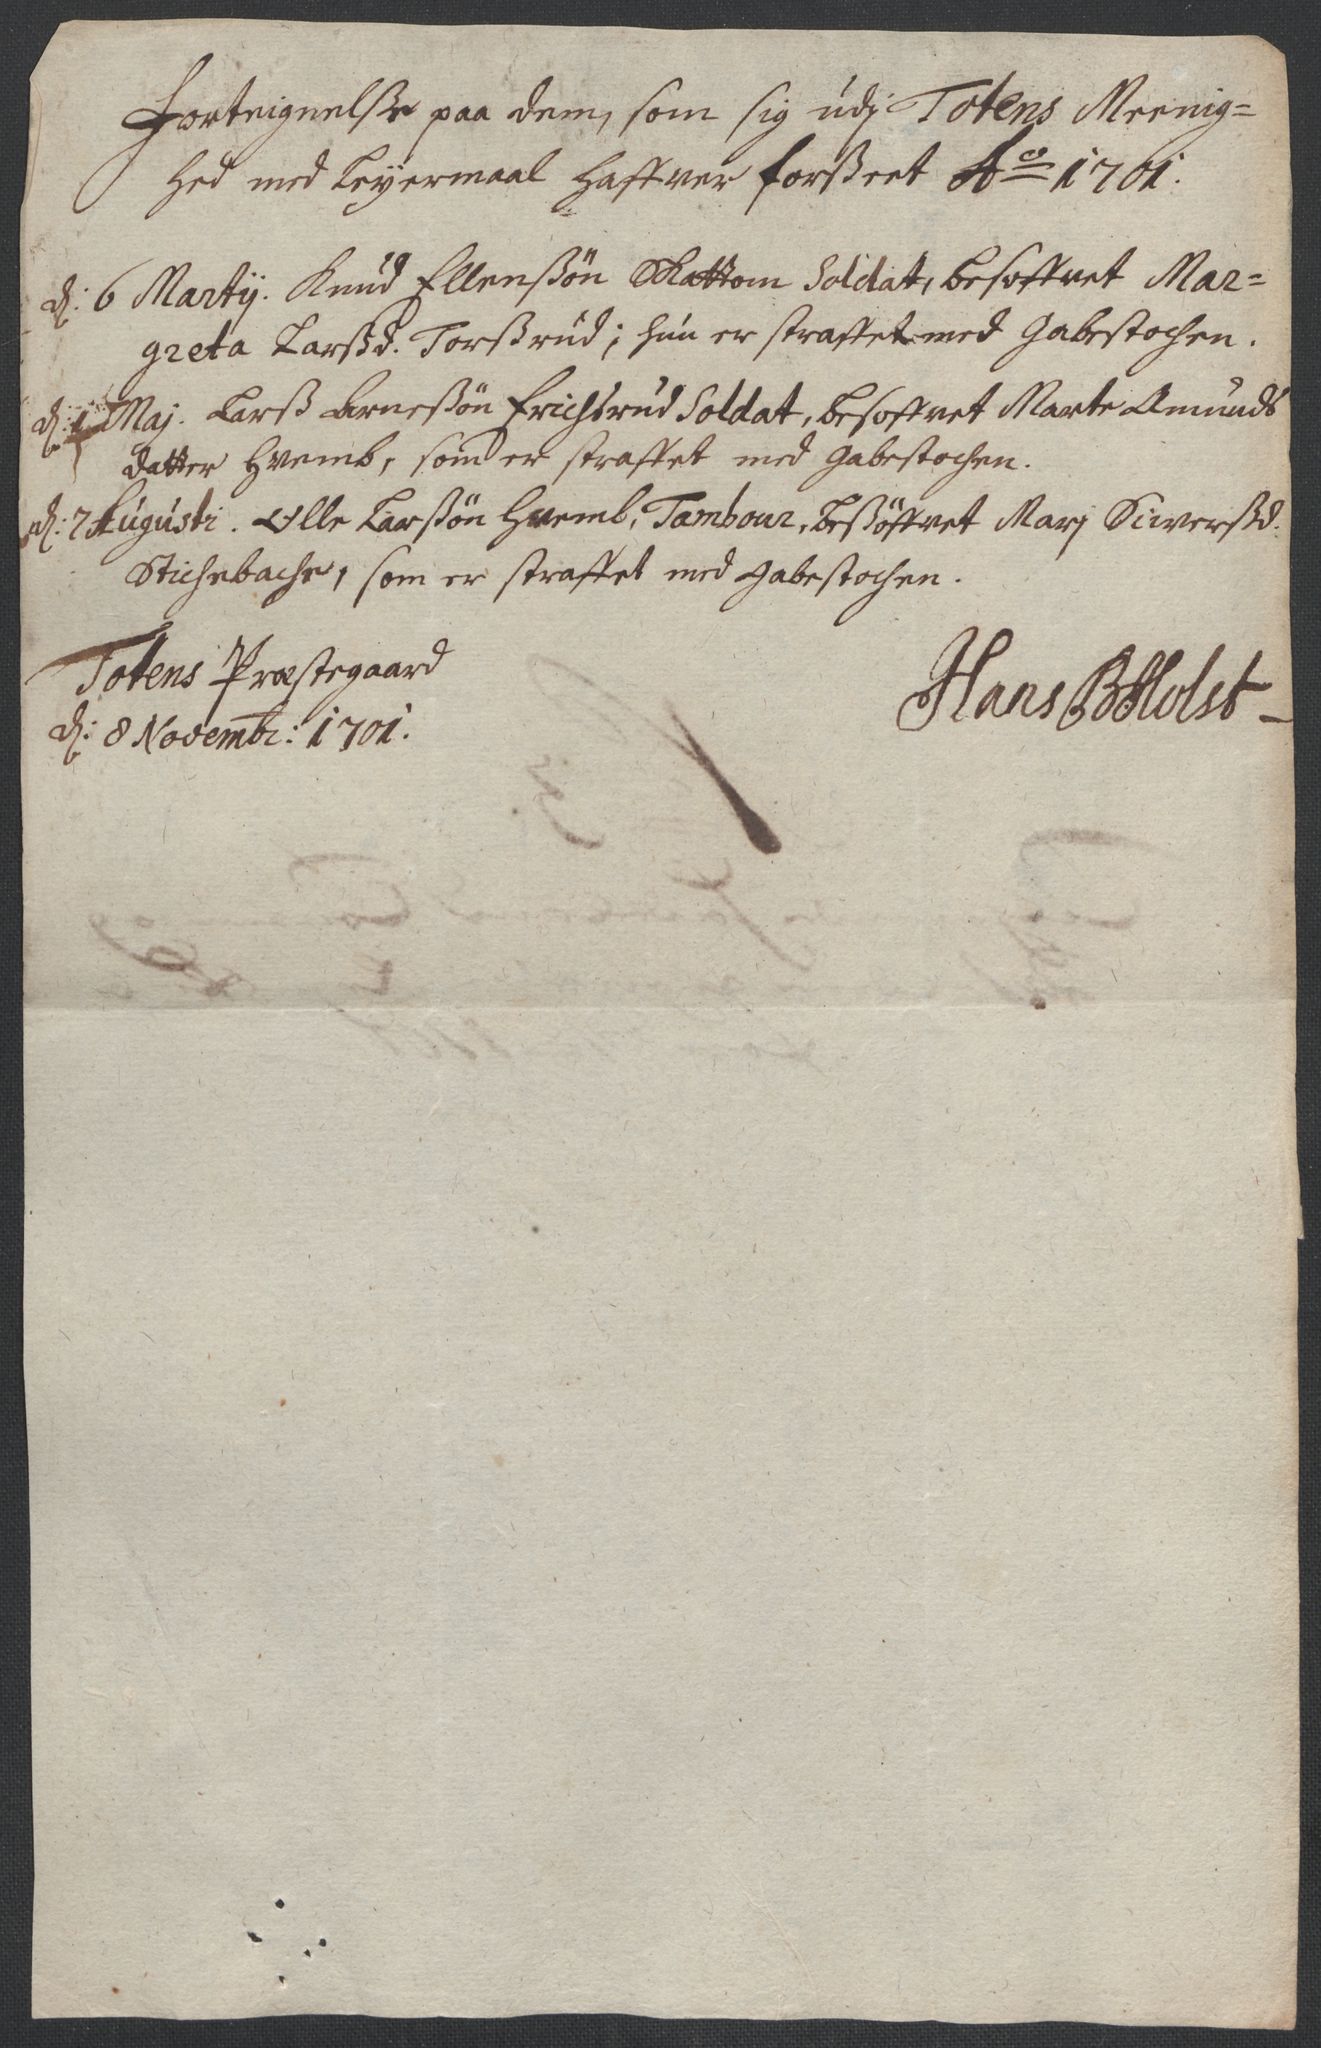 Forteignelse paa dem, som sig udj Totens Meenig=
hed med Leyermaal haffver forsseet Ao 1701.
d: 6 Martij. Knud Ellenssøn Skattom Soldat, besoffvet Mar=
greta Larssd. Torssrud; hun er straffet med Gabestochen.
d: 1 Maj. Larss Arnessøn Erichsrud Soldat, besoffvet Marte Amunds
datter Hvemb, som er straffet med Gabestochen.
d: 7 Augusti. Olle Larssøn Hvemb, Tambour, bessøffvet Marj Siwerssd.
Stichebache, som er straffet med Gabestochen.
Totens Præstegaard
d: 8 Novembr: 1701.
Hans B Holst